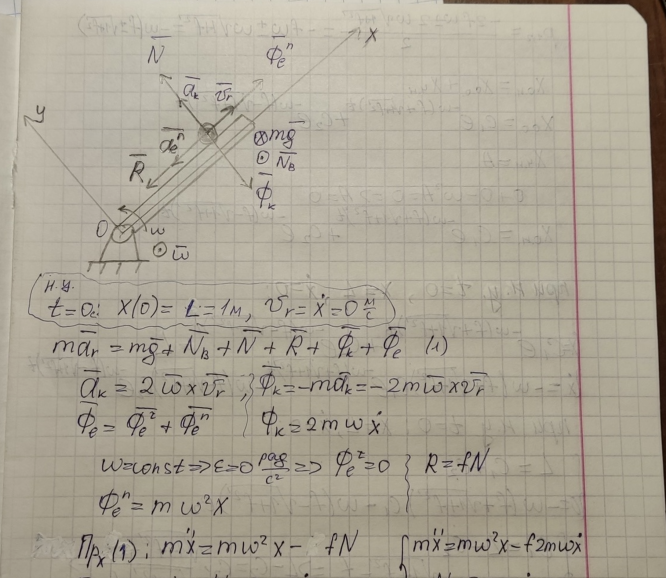 N̄
Φ̄eⁿ
x
āk
v̄r
y
āeⁿ
mḡ
N̄в
R̄
Φ̄k
O
ω
ω̄
н.у.
t=0: x(0)=L=1м, vr=ẋ=0 м/с
mār = mḡ + N̄в + N̄ + R̄ + Φ̄k + Φ̄e (1)
āk = 2ω̄×v̄r, Φ̄k=-māk=-2mω̄×v̄r
Φ̄e = Φ̄eᵗ + Φ̄eⁿ Φk=2mωẋ
ω=const=>ε=0 рад/с²=> Φeᵗ=0 R=fN
Φeⁿ = mω²x
Прx(1): mẍ=mω²x- fN mẍ=mω²x-f2mωẋ